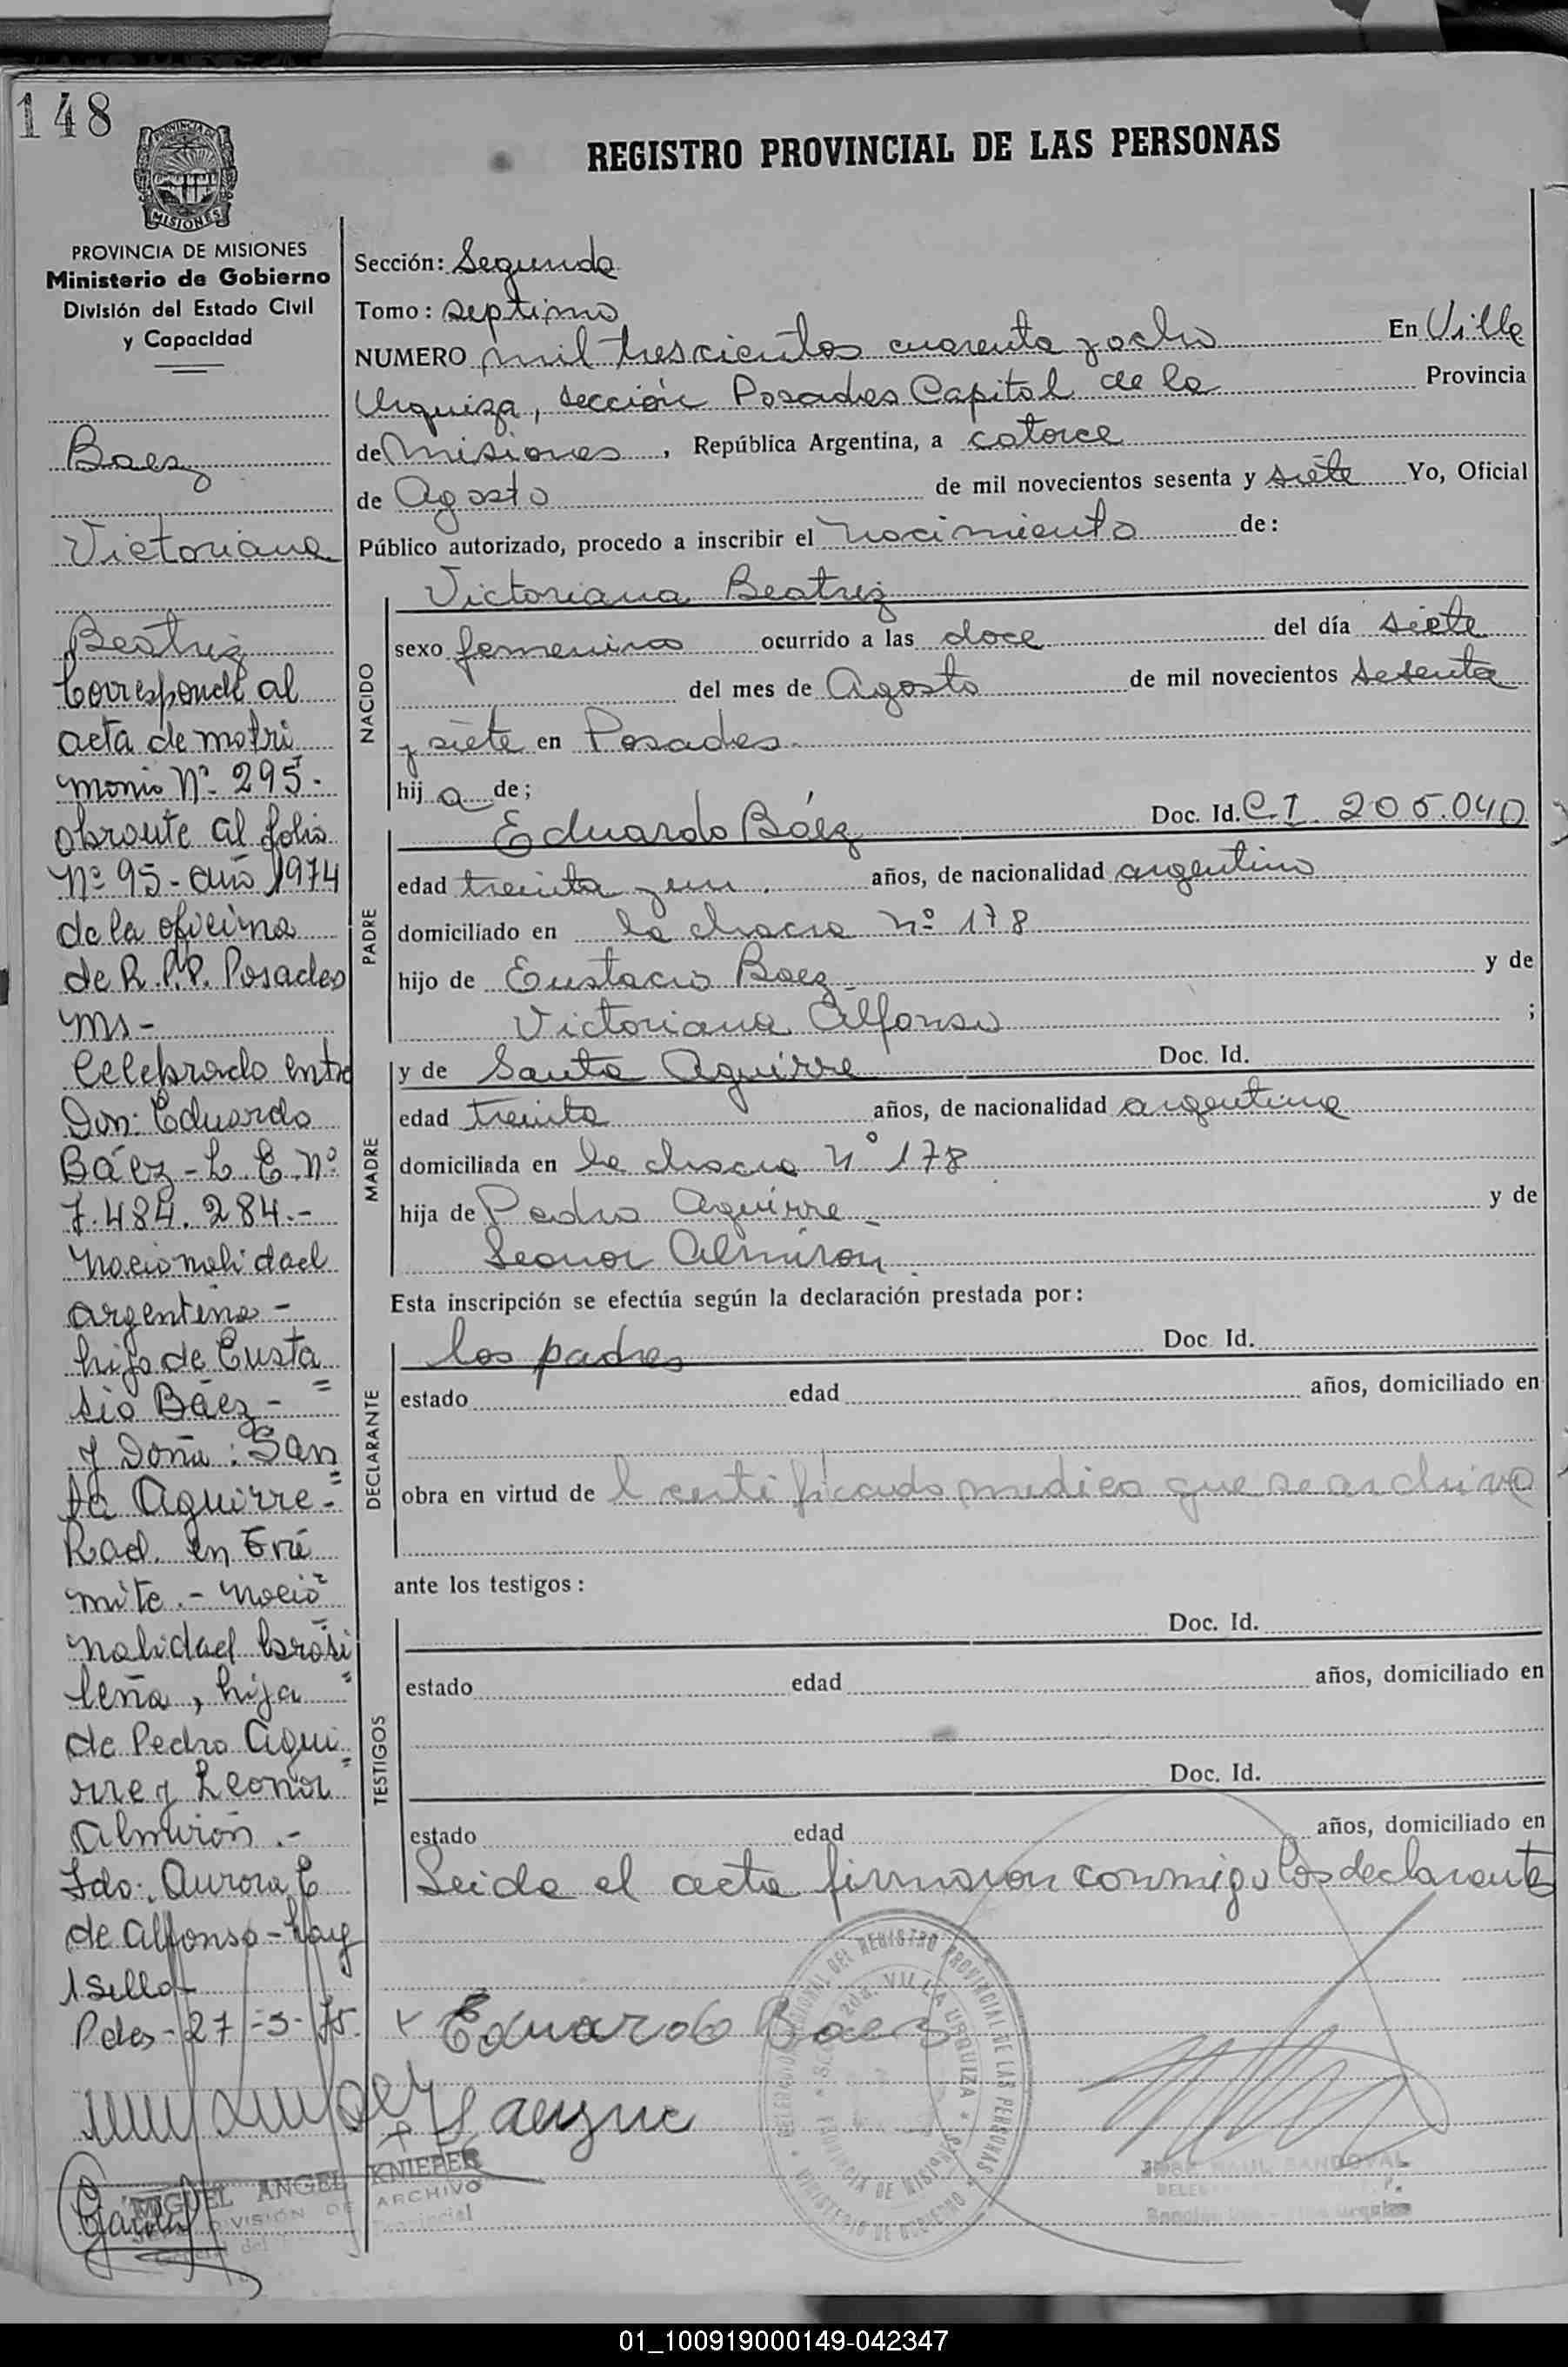 148
PROVINCIA DE
MISIONES
REGISTRO PROVINCIAL DE LAS PERSONAS
PROVINCIA DE MISIONES
Ministerio de Gobierno
División del Estado Civil
y Capacidad
Baez
Victoriana
Beatriz
Corresponde al
acta de matri
monio Nº 295-
obrante al folio
Nº 95- año 1974
de la oficina
de R.P.P. Posadas
Ms-
Celebrado entre
Don: Eduardo
Báez - L.E. Nº
7.484.284.-
nacionalidad
argentina-
hijo de Eusta
sio Báez-
y Doña: San
ta Aguirre-
Rad. en Trá
mite.- nacio
nalidad brasi
leña, hija
de Pedro Agui
rre y Leonor
Almirón.-
Fdo: Aurora E
de Alfonso- hay
1 sello-
Pdas-27-3-75.
MIGUEL ANGEL KNIEPER
DIVISIÓN DE ARCHIVO
Sección: Segunda
Tomo: septimo
NUMERO mil trescientos cuarenta y ocho En Villa
Urquiza, sección Posadas Capital de la Provincia
de Misiones, República Argentina, a catorce
de Agosto de mil novecientos sesenta y siete Yo, Oficial
Público autorizado, procedo a inscribir el nacimiento de:
NACIDO
Victoriana Beatriz
sexo femenino ocurrido a las doce del día siete
del mes de Agosto de mil novecientos sesenta
y siete en Posadas
hija de;
PADRE
Eduardo Báez Doc. Id. C.I. 205.040
edad treinta y un años, de nacionalidad argentino
domiciliado en la chacra Nº 178
hijo de Eustacio Baez y de
Victoriana Alfonso ;
MADRE
y de Santa Aguirre Doc. Id.
edad treinta años, de nacionalidad argentina
domiciliada en la chacra Nº 178
hija de Pedro Aguirre y de
Leonor Almirón
Esta inscripción se efectúa según la declaración prestada por:
DECLARANTE
los padres Doc Id.
estado edad años, domiciliado en
obra en virtud de l certificado medico que se archiva
ante los testigos:
TESTIGOS
Doc. Id.
estado edad años, domiciliado en
Doc. Id.
estado edad años, domiciliado en
Leida el acta firmaron conmigo los declarante
Eduardo Baez
REGISTRO PROVINCIAL DE LAS PERSONAS
VILLA URQUIZA
PROVINCIA DE MISIONES
MINISTERIO DE GOBIERNO
RAUL SANDOVAL
01_100919000149-042347